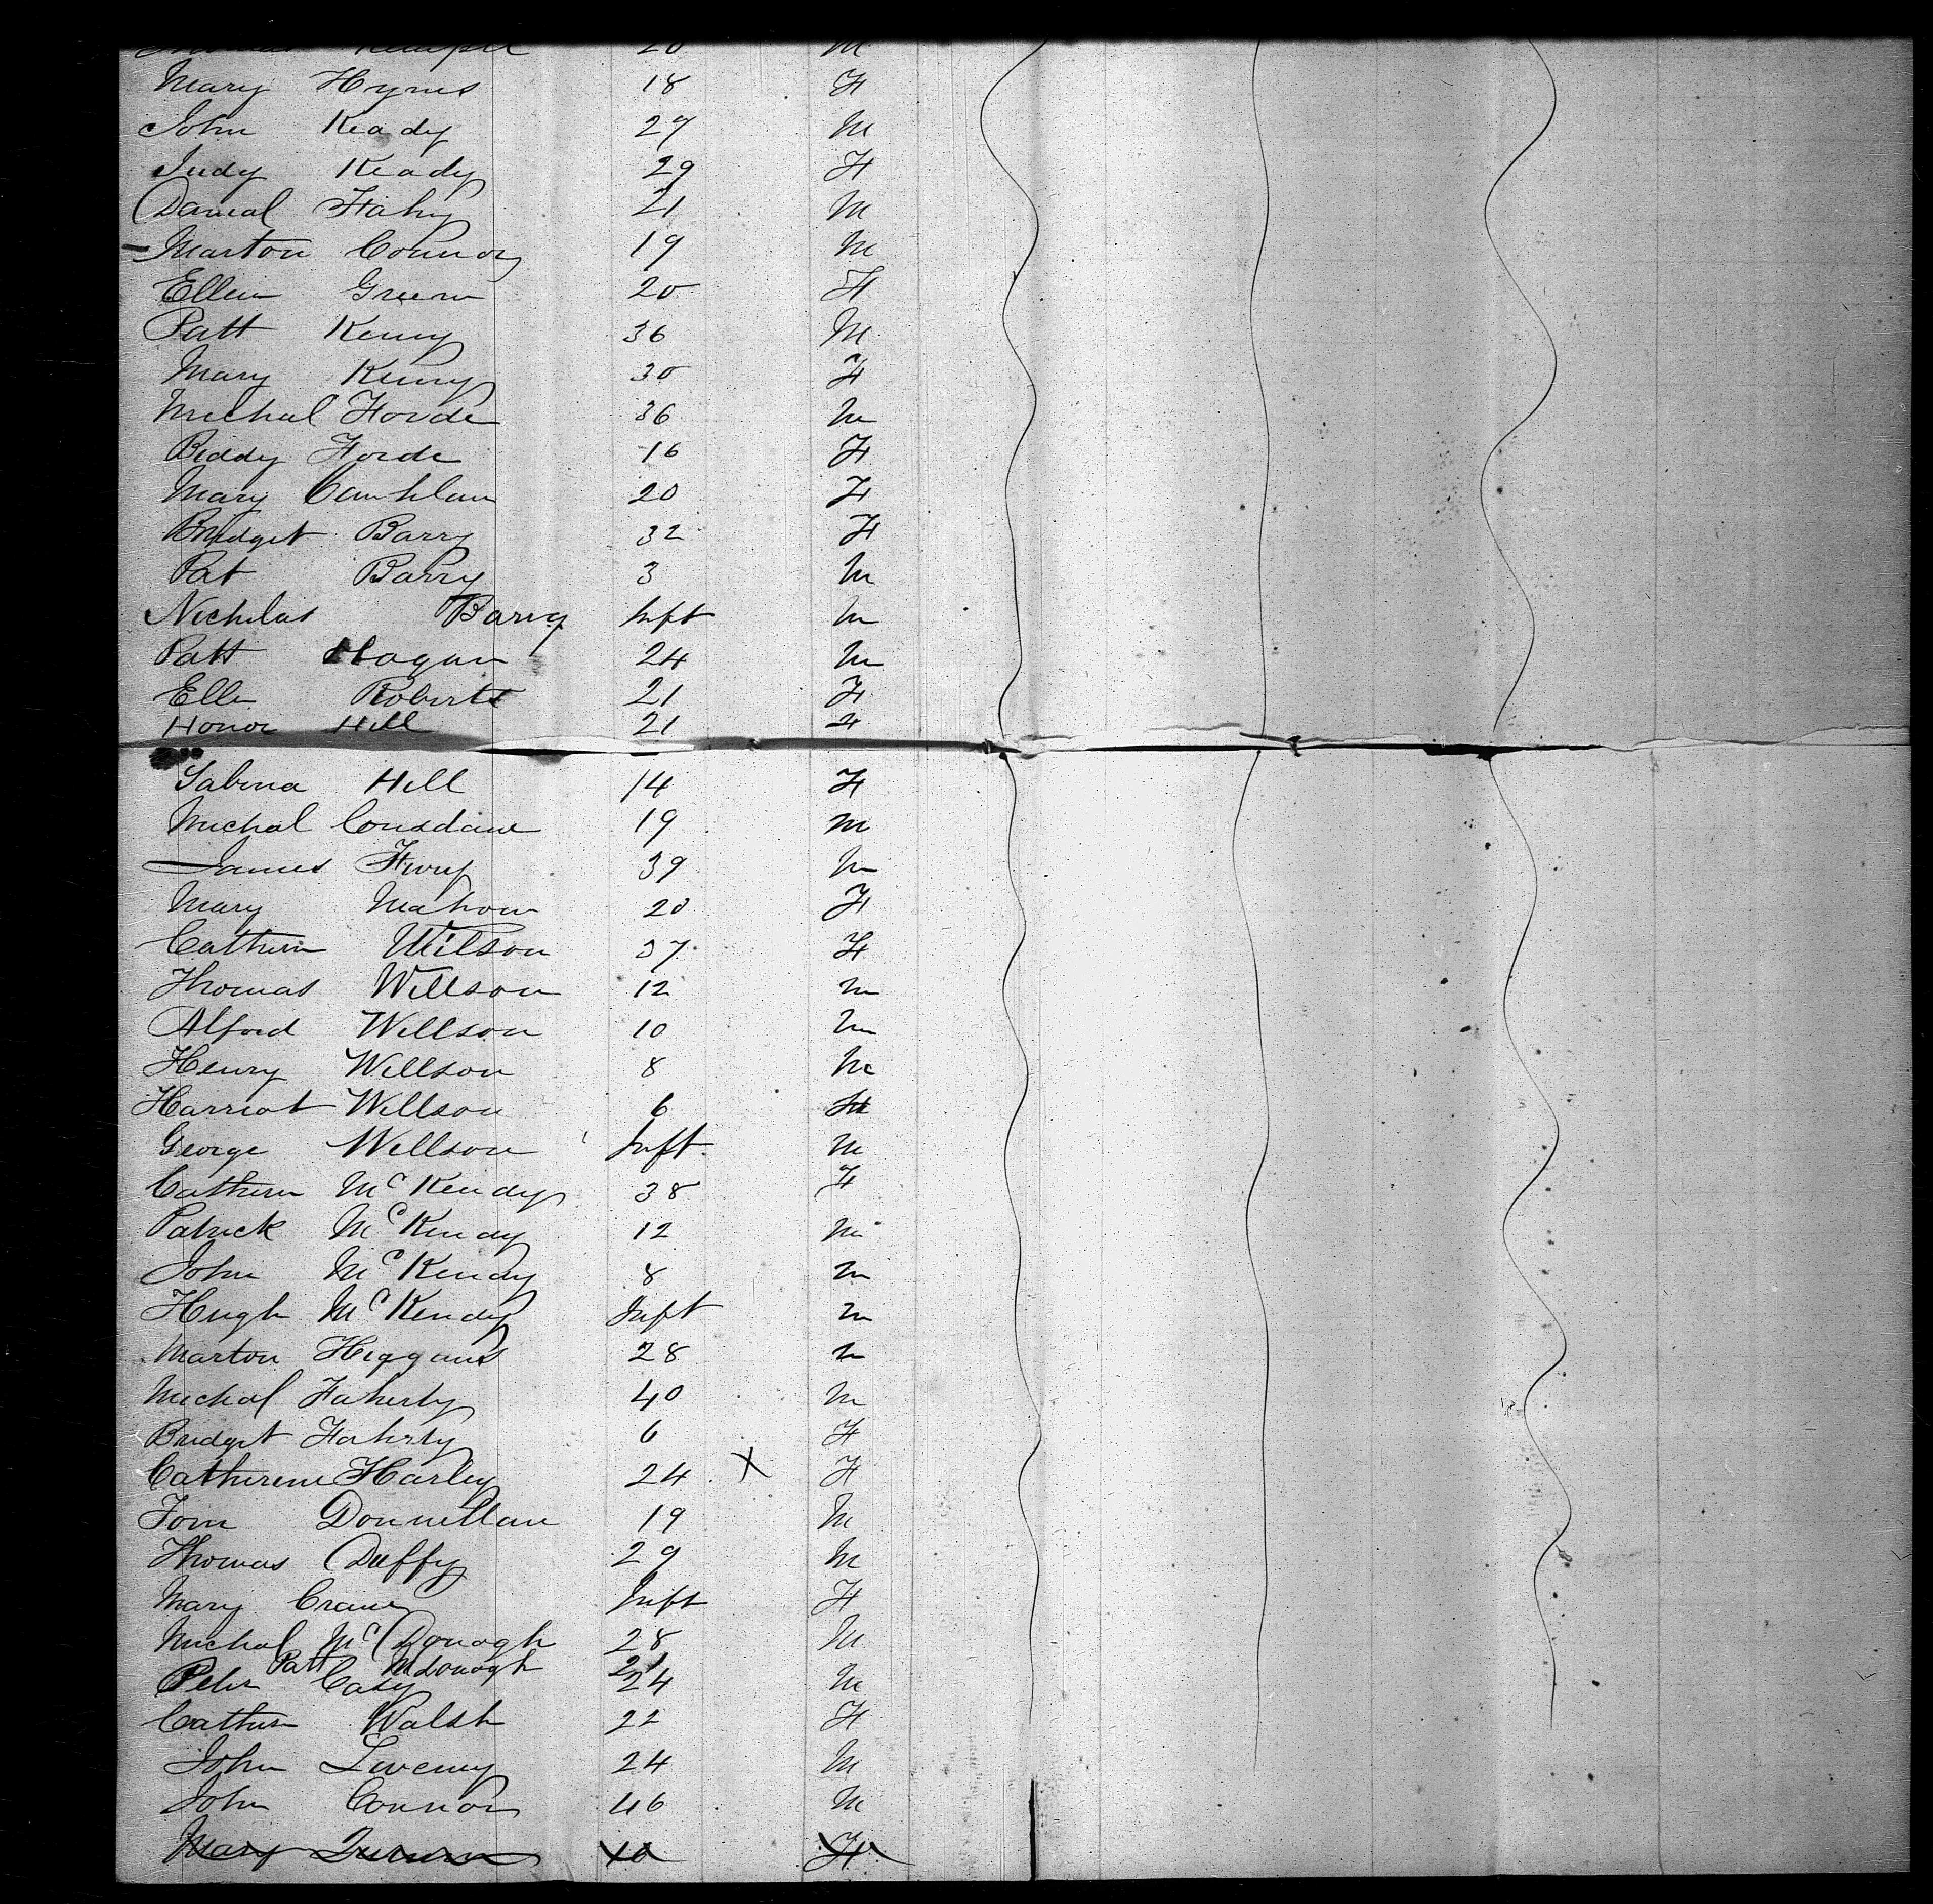 20 M
Mary Hynes 18 F
John Keady 27 M
Judy Keady 29 F
Danial Fahy 21 M
Marton Connor 19 M
Ellen Green 20 F
Patt Kenny 36 M
Mary Kenny 30 F
Michal Forde 36 M
Biddy Forde 16 F
Mary 20 F
Bridget Barry 32 F
Pat Barry 3 M
Nichilas Barry Inft M
Patt Hogan 24 M
Elle Roberts 21 F
Honor Hill 21 F
Sabina Hill 14 F
Michal Consdine 19 M
James 39 M
Mary Mahon 20 F
Cathern Wilson 37 F
Thomas Willson 12 M
Alford Willson 10 M
Henry Willson 8 M
Harriot Willson 6
George Willson Inft M
Cathern McKendy 38 F
Patrick McKendy 12 M
John McKendy 8 M
Hugh McKendy Inft M
Marton Higgans 28 M
Michal Faherty 40 M
Bridget Faherty 6 F
Catherine Harley 24 X F
Tom Donnellan 19 M
Thomas Duffy 29 M
Mary Inft F
Michal McDonogh 28 M
Patt McDonogh 21
Peter Casy 24 M
Cathern Walsh 22 F
John 24 M
John Connor 46 M
Mary F